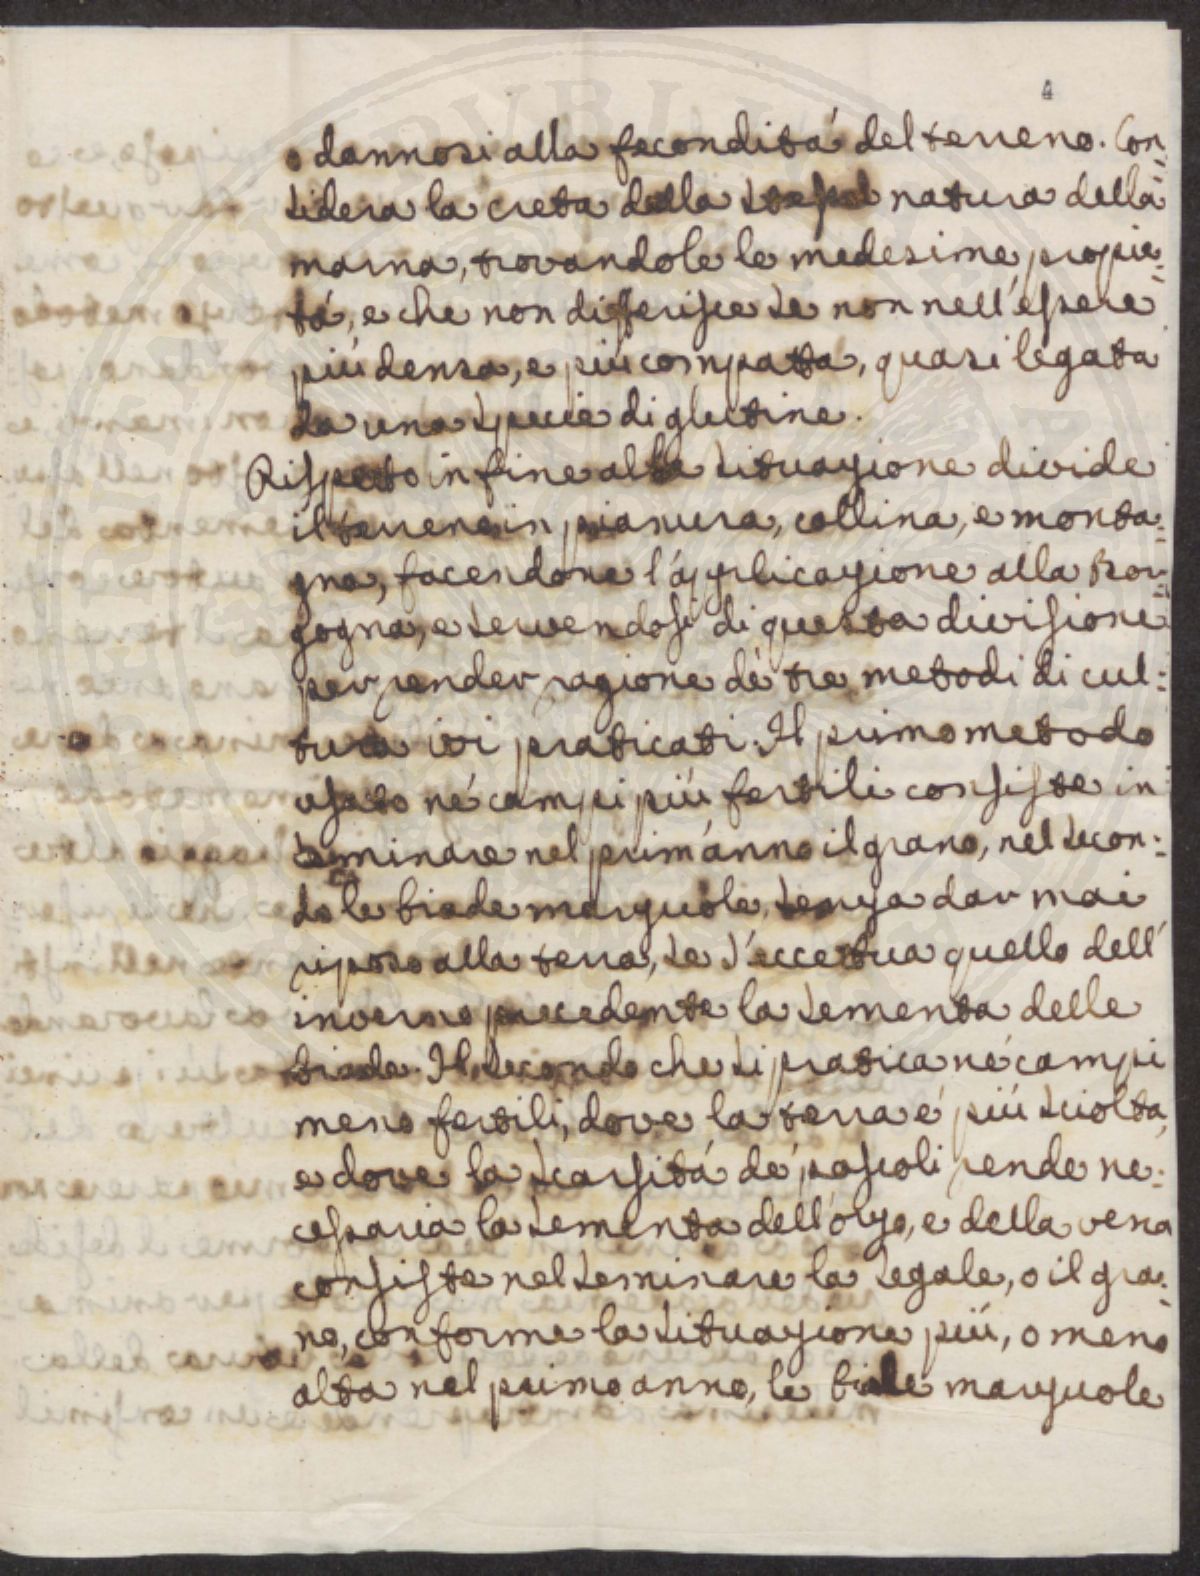 4
o dannosi alla fecondità del terreno. Con=
sidera la creta della stessa natura della
marna, trovandole le medesime proprie=
tà, e che non differisce se non nell'essere
più densa, e più compatta, quasi legata
da una specie di glutine.
Rispetto infine alla situazione divide
il terreno in pianura, collina, e monta=
gna, facendone l'applicazione alla Bor=
gogna, e servendosi di questa divisione
per render ragione de' tre metodi di cul=
tura ivi praticati. Il primo metodo
usato ne' campi più fertili consiste in
seminare nel prim'anno il grano, nel secon=
do le biade marzuole, senza dar mai
riposo alla terra, se s'eccettua quello dell'
inverno precedente la sementa delle
biade. Il secondo che si pratica ne' campi
meno fertili, dove la terra è più sciolta,
e dove la scarsità de' pascoli rende ne=
cessaria la sementa dell'orzo, e della vena
consiste nel seminare la segale, o il gra=
no, conforme la situazione più, o meno
alta nel primo anno, le biade marzuole